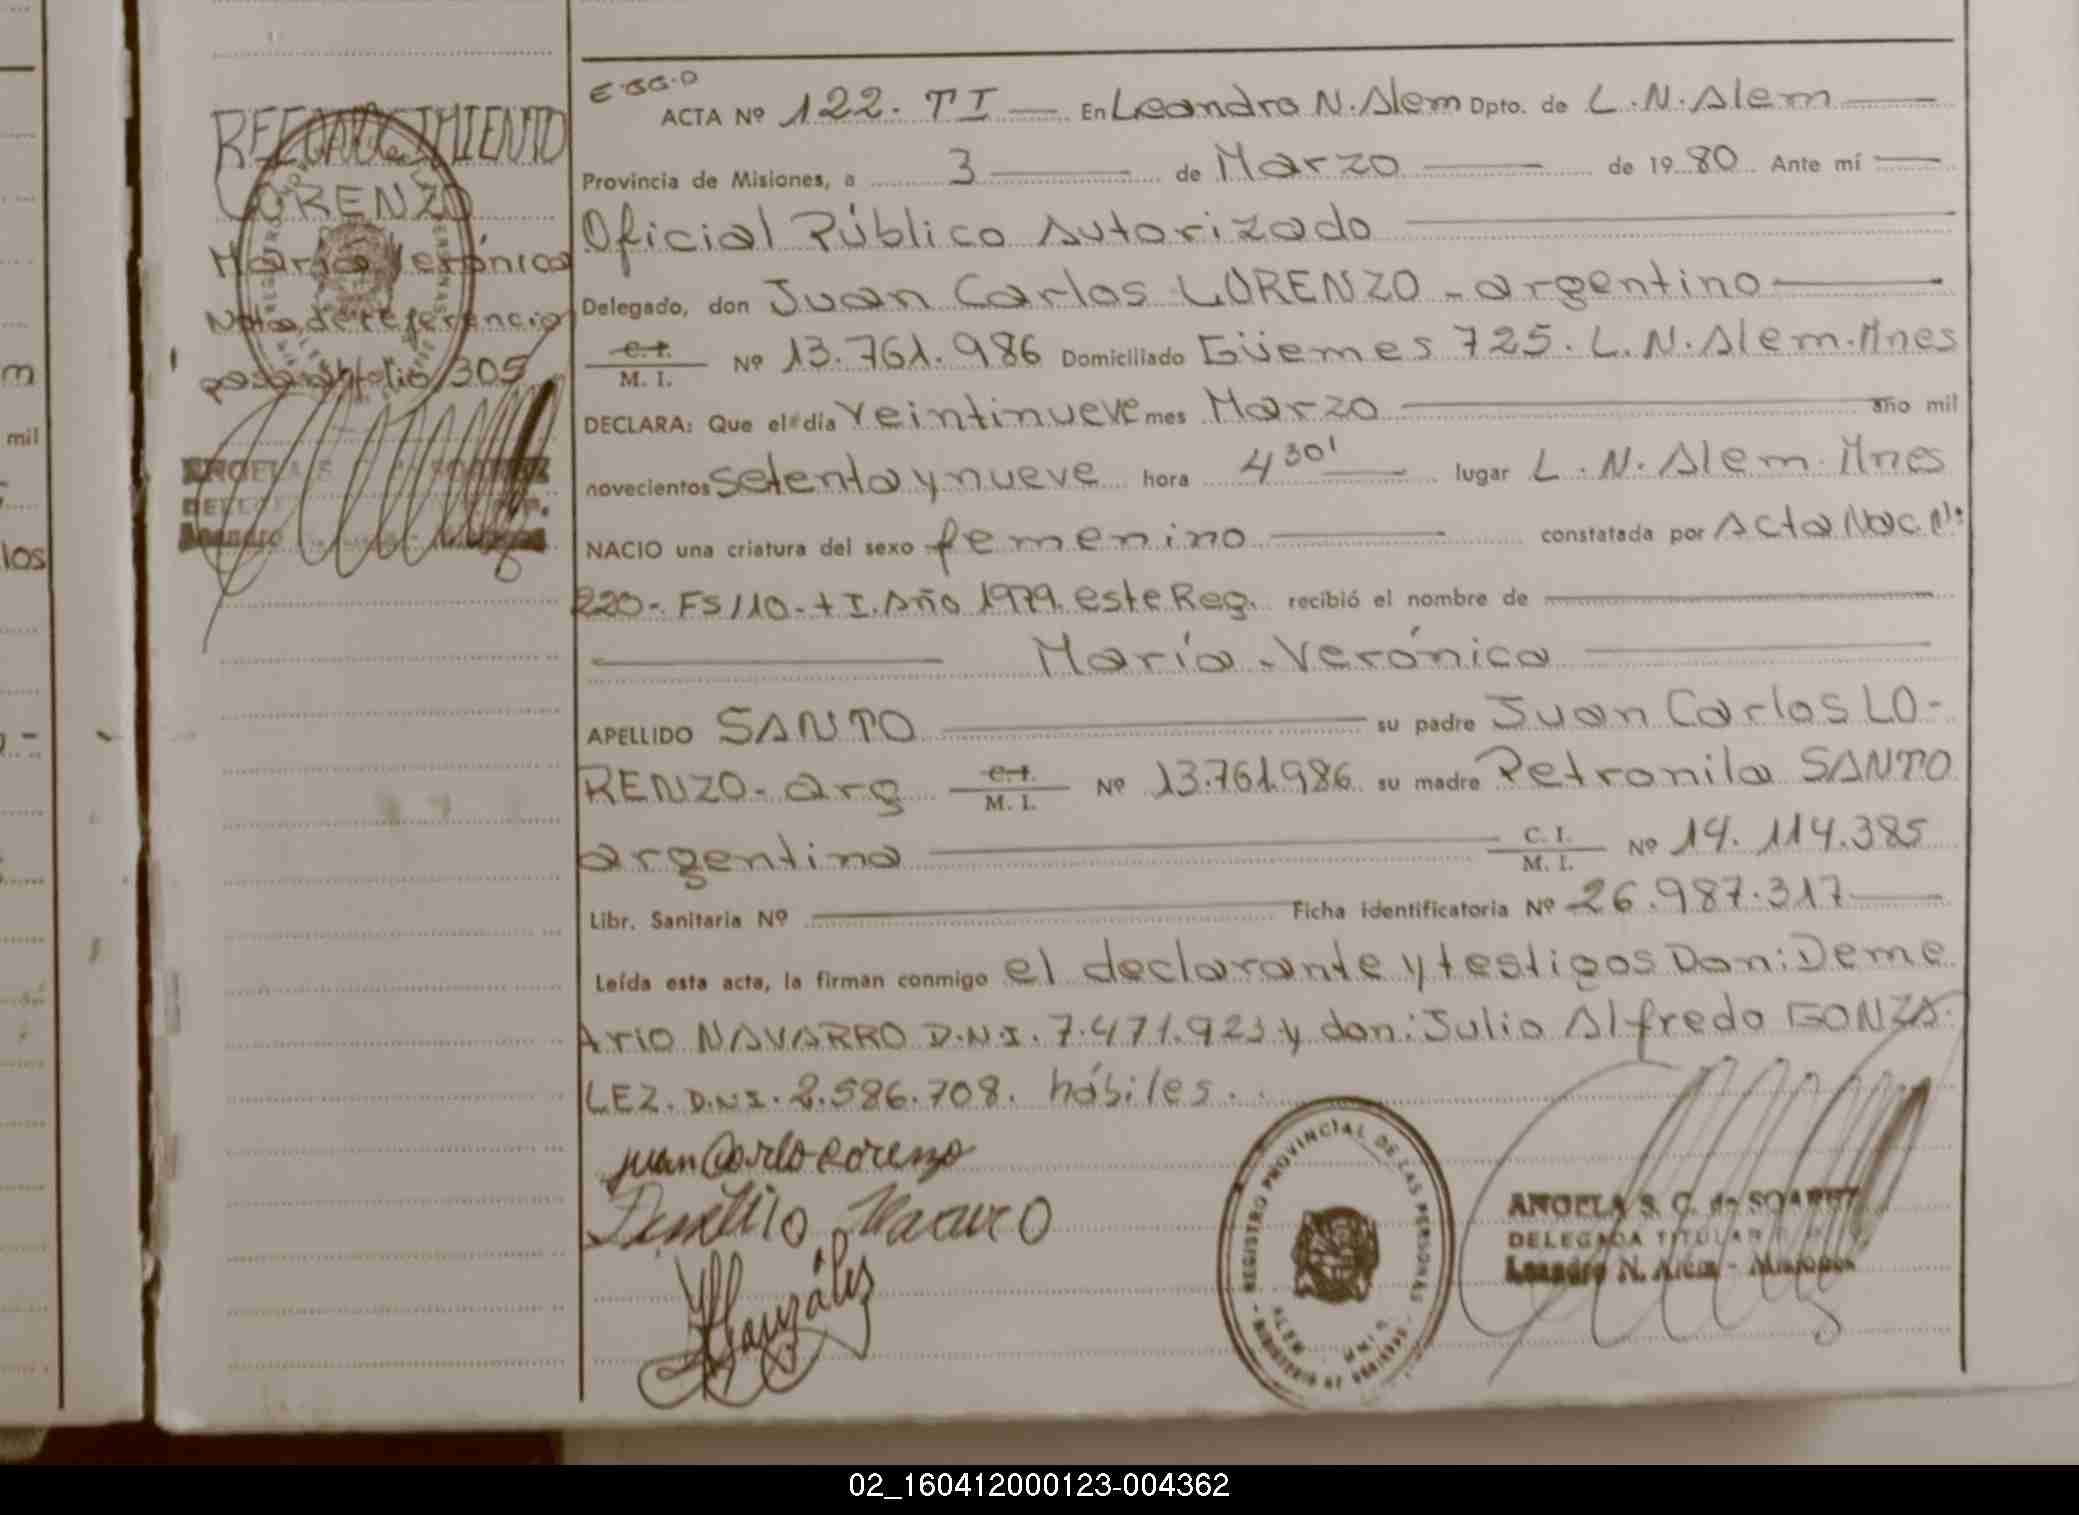 m
mil
los
RECONOCIMIENTO
LORENZO
María Verónica
Nota de referencia
pasa al folio 305
ANGELA S. C. de SOAREZ
Leandro
E-GG-D
ACTA Nº 122. TI — En Leandro N. Alem Dpto. de L. N. Alem —
Provincia de Misiones, a 3 — de Marzo — de 19 80 Ante mí —
Oficial Público Autorizado —
Delegado, don Juan Carlos LORENZO - argentino —
C. I. / M. I. Nº 13.761.986 Domiciliado Güemes 725. L. N. Alem. Mnes
DECLARA: Que el día veintinueve mes Marzo — año mil
novecientos setenta y nueve hora 4 30' — lugar L. N. Alem. Mnes
NACIO una criatura del sexo femenino — constatada por Acta Nac. Nº
220-. FS/10-. tI. Año 1979. este Reg. recibió el nombre de —
— María - Verónica —
APELLIDO SANTO — su padre Juan Carlos LO-
RENZO - arg C. I. / M. I. Nº 13.761.986 su madre Petronila SANTO
argentina — C. I. / M. I. Nº 14.114.385
Libr. Sanitaria Nº — Ficha identificatoria Nº 26.987.317 —
Leída esta acta, la firman conmigo el declarante y testigos Don: Deme
trio NAVARRO D.N.I. 7.471.923 y don: Julio Alfredo GONZA-
LEZ. D.N.I. 2.586.708. hábiles.
Juan Carlo Lorenzo
Demetrio Navarro
González
REGISTRO PROVINCIAL DE LAS PERSONAS
ALEM MNES.
MINISTERIO DE GOBIERNO
ANGELA S. C. de SOAREZ
DELEGADA TITULAR
Leandro N. Alem - Misiones
02_160412000123-004362